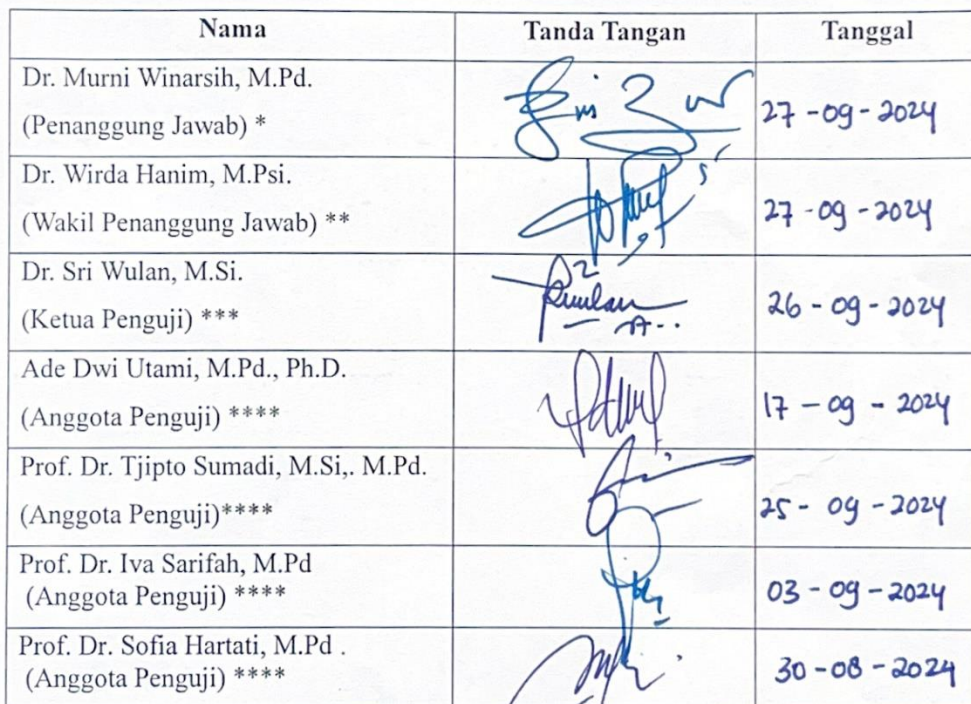 Nama Tanda Tangan Tanggal
Dr. Murni Winarsih, M.Pd.
(Penanggung Jawab) * 27-09-2024
Dr. Wirda Hanim, M.Psi.
(Wakil Penanggung Jawab) ** 27-09-2024
Dr. Sri Wulan, M.Si.
(Ketua Penguji) *** 26-09-2024
Ade Dwi Utami, M.Pd., Ph.D.
(Anggota Penguji) **** 17-09-2024
Prof. Dr. Tjipto Sumadi, M.Si,. M.Pd.
(Anggota Penguji)**** 25-09-2024
Prof. Dr. Iva Sarifah, M.Pd
(Anggota Penguji) **** 03-09-2024
Prof. Dr. Sofia Hartati, M.Pd .
(Anggota Penguji) **** 30-08-2024